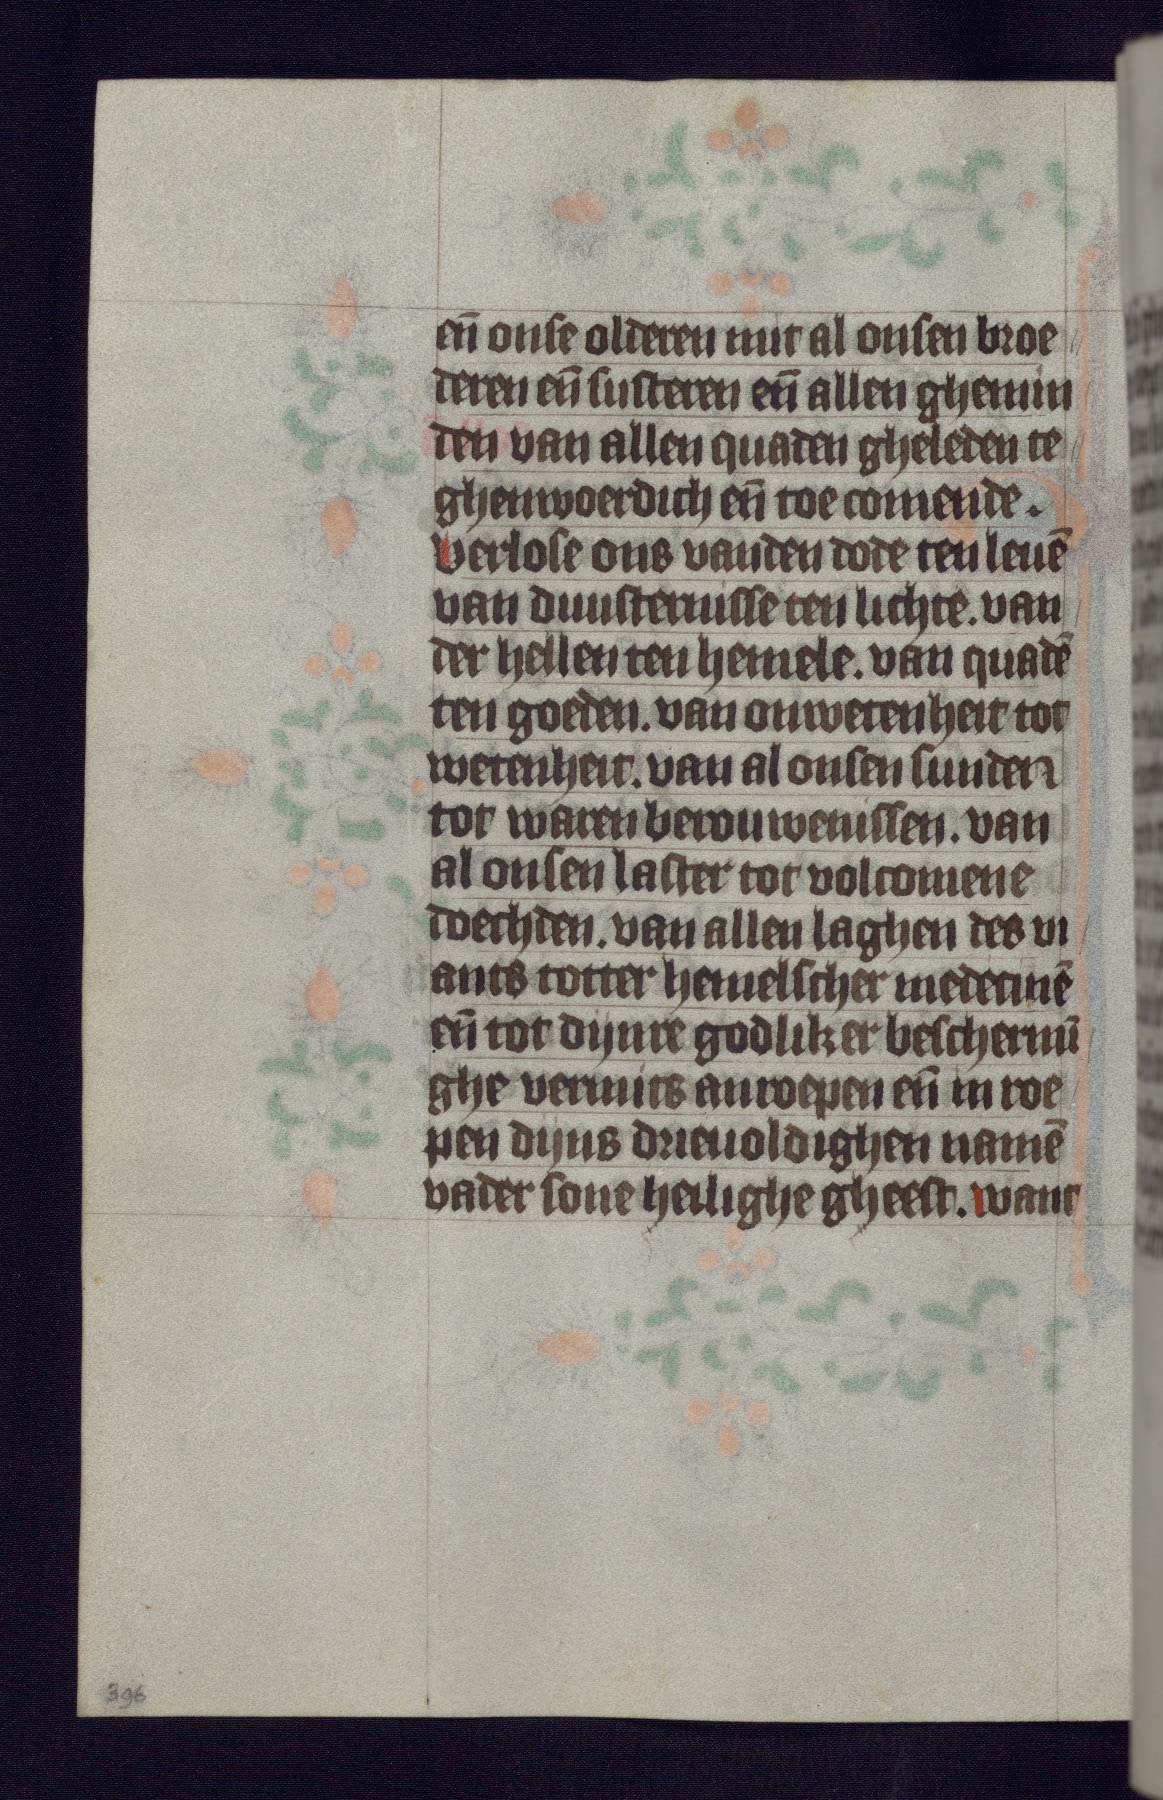 en̄ onse olderen mit al onsen broe
deren en̄ susteren en̄ allen ghemin
den van allen quaden gheleden te
ghenwoerdich en̄ toe comende.
Verlose ons vanden dode ten leuē
van duusternisse ten lichte. van
der hellen ten hemele. van quadē
ten goeden. van onwetenheit tot
wetenheit. van al onsen sunden
tot waren berouwenissen. van
al onsen laster tot volcomene
doechden. van allen laghen des vi
ants totter hemelscher medecinē
en̄ tot dijnre godliker beschermī
ghe vermits anroepen en̄ in roe
pen dijns drieuoldighen namē
vader sone heilighe gheest. want
396